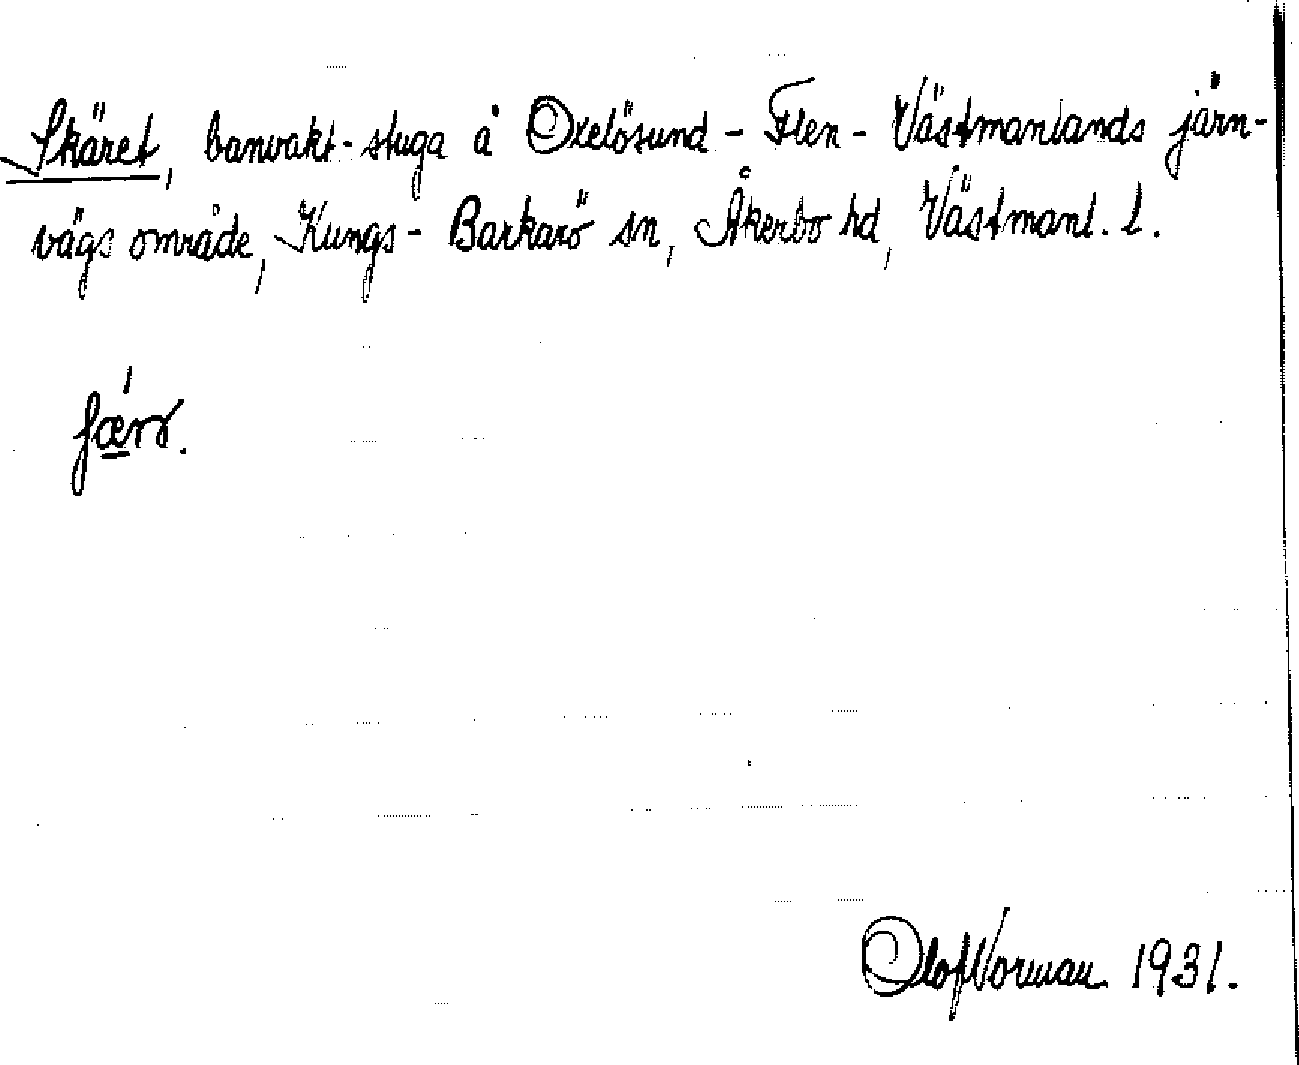 Skäret, banvakt-stuga å Oxelösund - Flen - Västmanlands järn-
vägs område, Kungs - Barkarö sn, Åkerbo hd, Västmanl. l.
Olof Norman 1931.